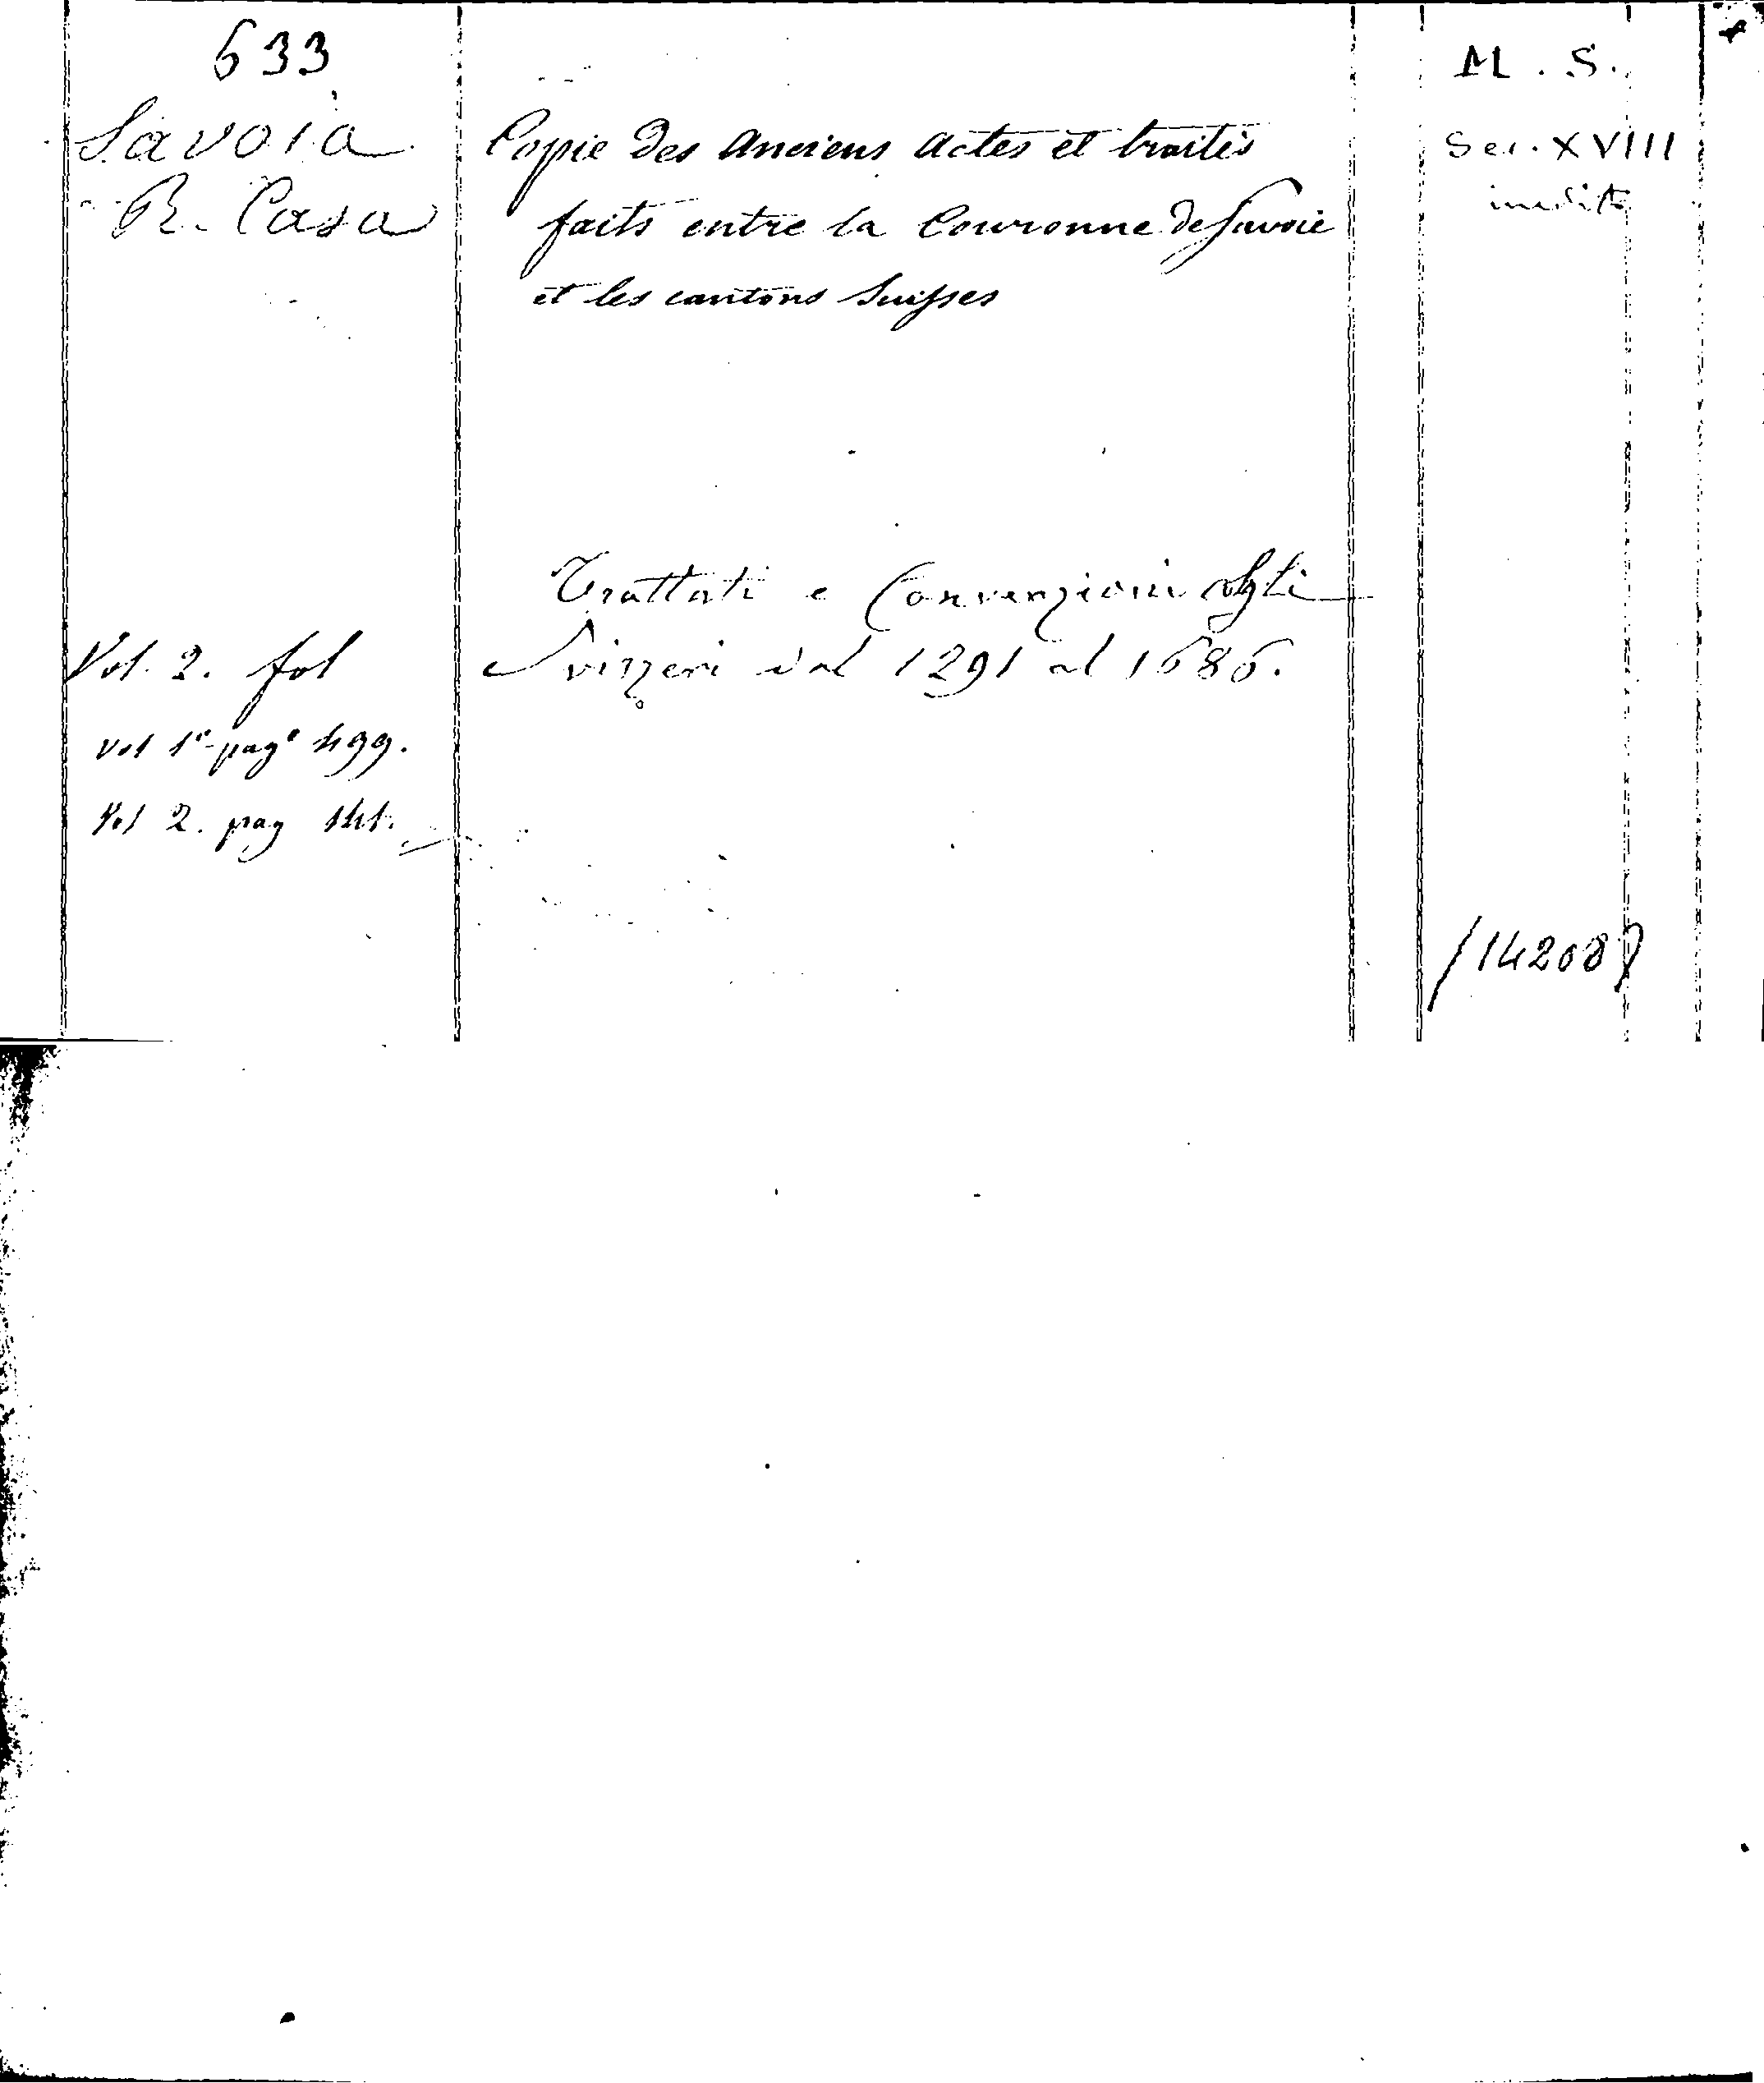 633
Savoia
R. Casa
Copie des Anciens Actes et traités
faits entre la Couronne de Savoie
et les cantons Suisses
M. S.
Sec. XVIII
inedito
Trattati e Convenzioni cogli
Svizzeri dal 1291 al 1686.
Vol. 2. fol
vol 1º pagº 499.
Vol 2. pag 141.
/14208